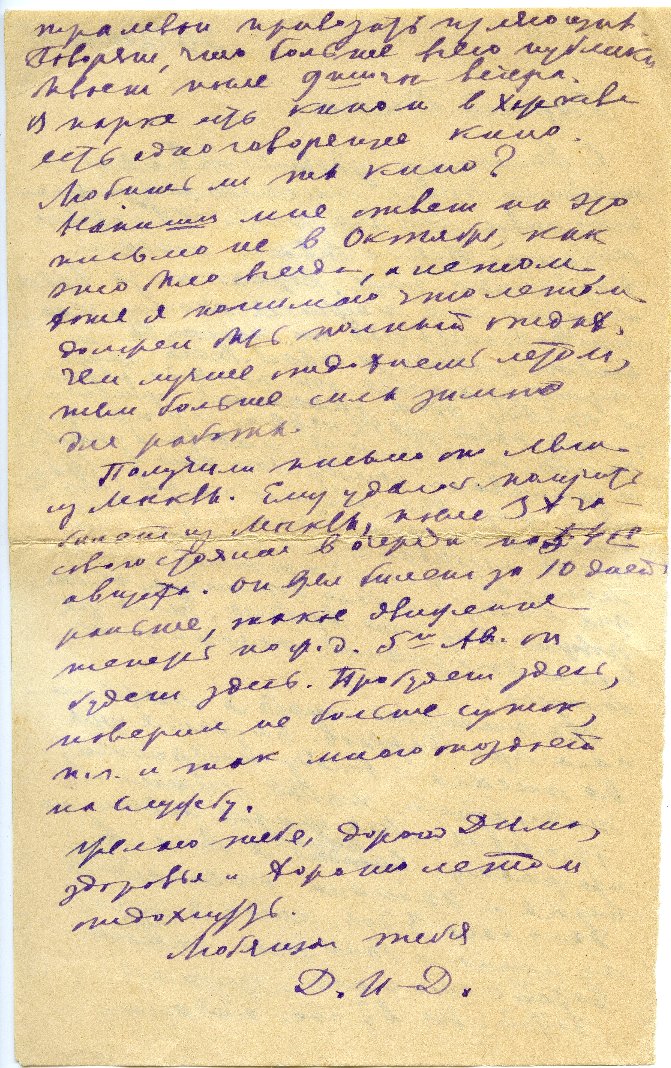 трамваи привозят гуляющих.
Говорят, что больше всего публики
бывает после 9ти час вечера.
В парке есть кино и в Харькове
есть одно говорящее кино.
Любишь ли ты кино?
Напиши мне ответ на это
письмо не в Октябре, как
это было всегда, а летом,
хотя я понимаю что летом
должен быть полный отдых.
Чем лучше отдохнешь летом,
тем больше силы зимою
для работы.
Получили письмо от Лёли
из Москвы. Ему удалось получить
билет из Москвы, после 3х ча-
сового стояния в очереди на
августа. Он взял билет за 10 дней
раньше, такое движение
теперь по ж.д. 5го Ав. он
будет здесь. Пробудет здесь,
наверно не больше суток,
п.ч. и так много опоздает
на службу.
Желаю тебе, дорогой Дима,
здоровья и хорошо летом
отдохнуть.
Любящий тебя
Д. И-Д.